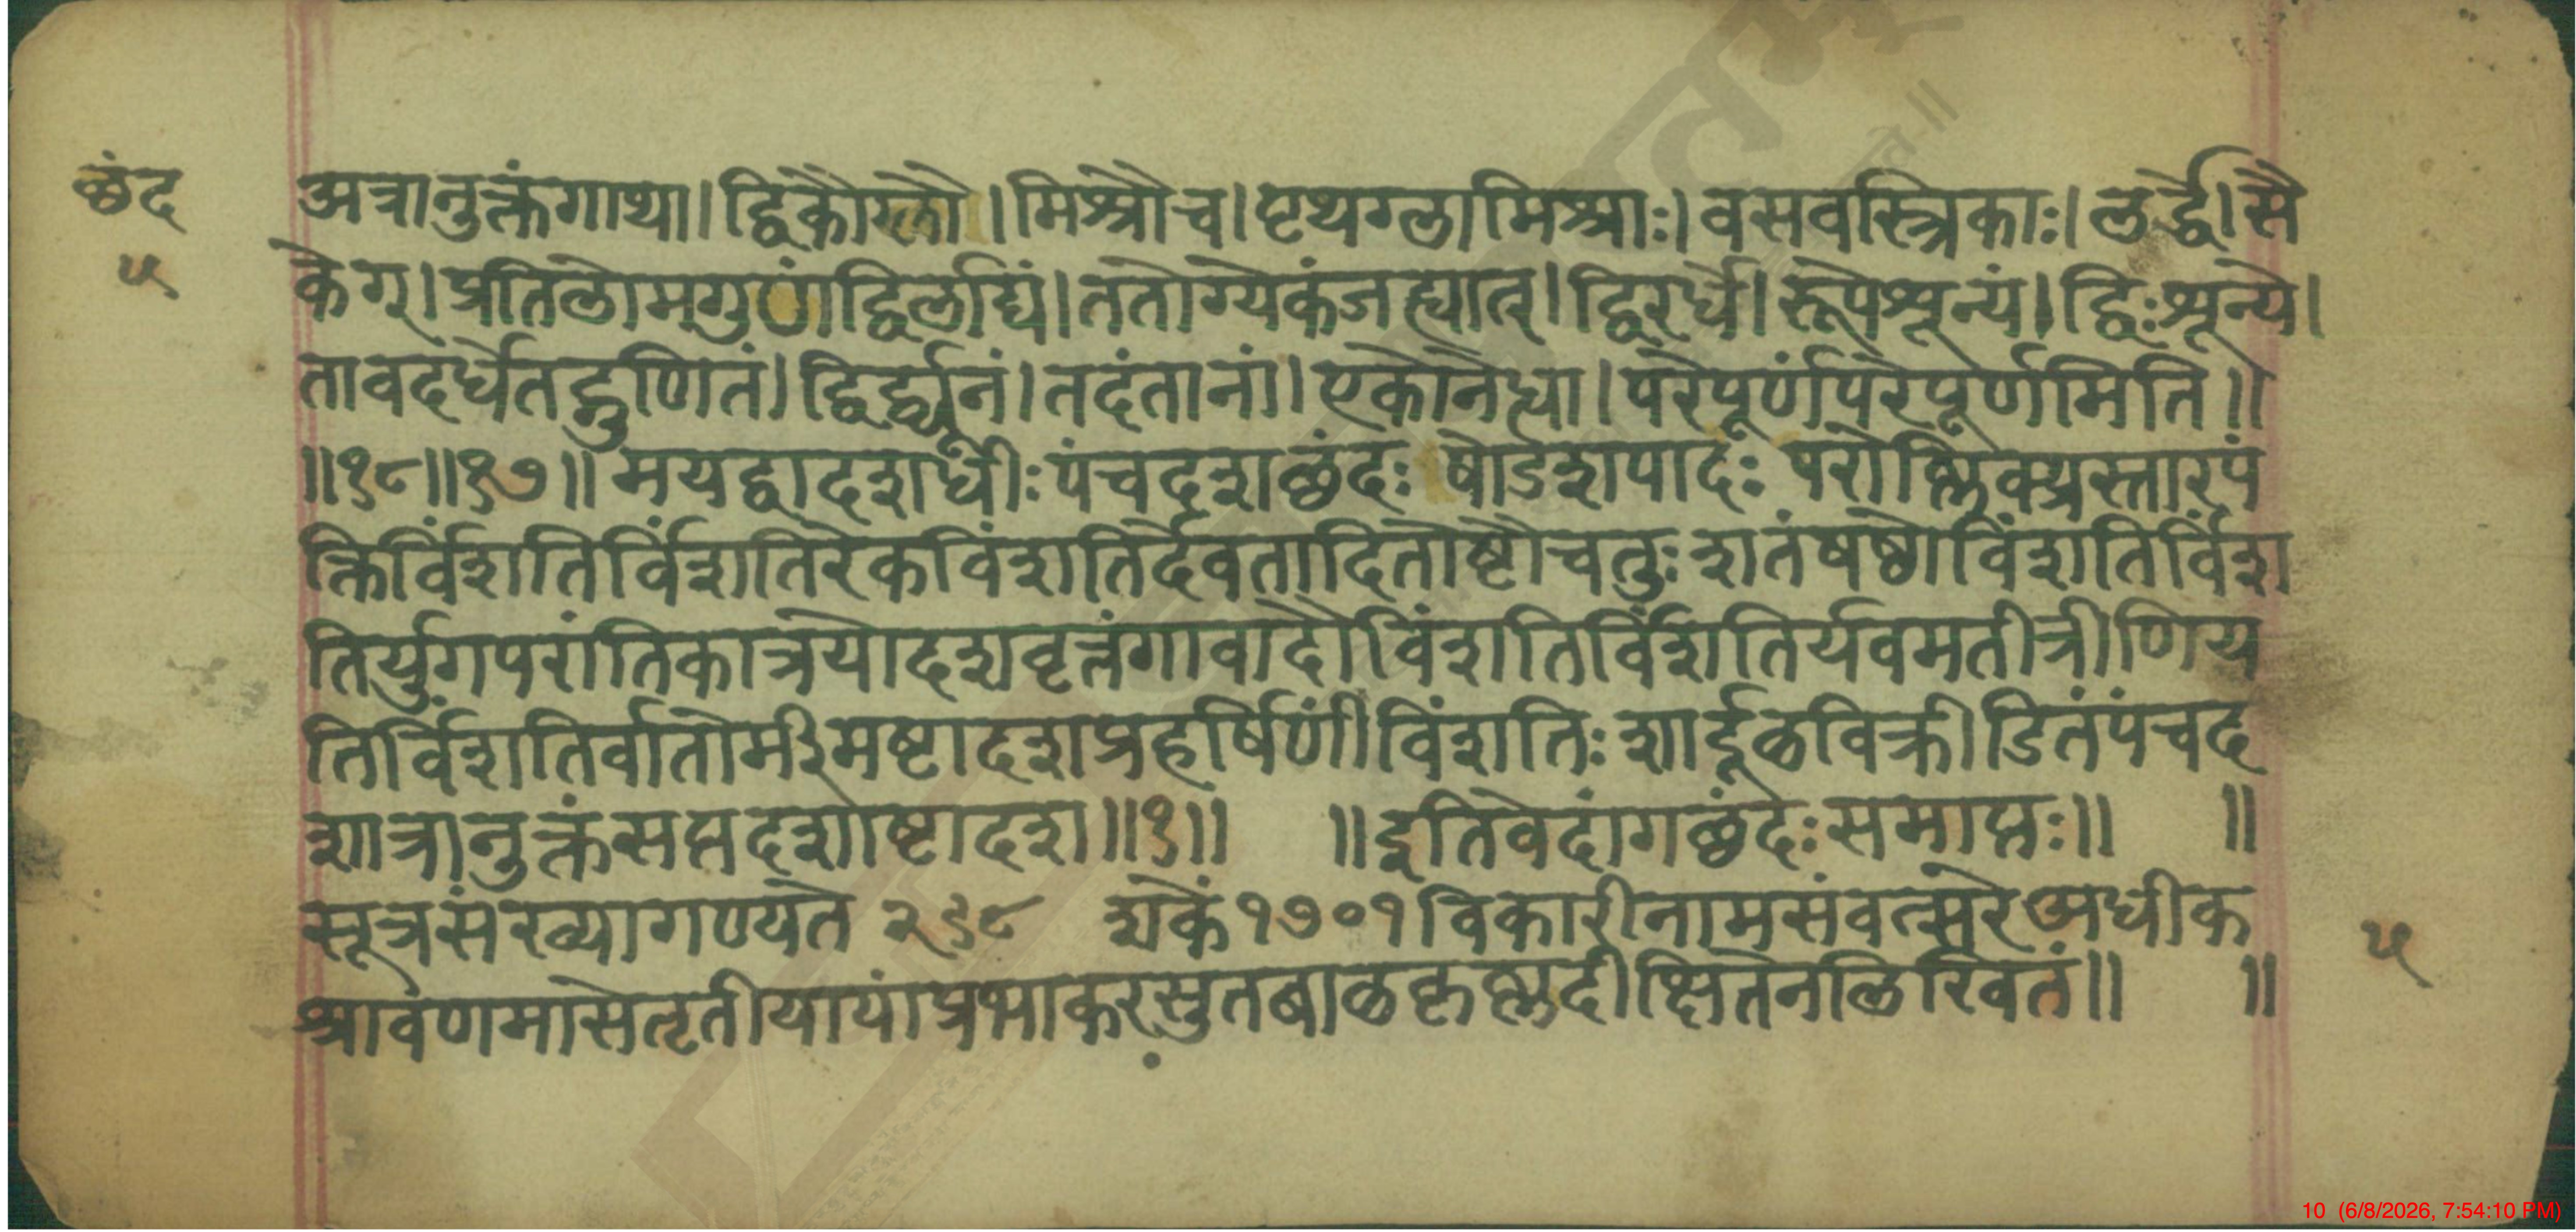 छंद
५
अत्रानुक्तंगाथा।द्विकौग्लौ।मिश्रौच।पृथग्लामिश्राः।वसवस्त्रिकाः।लर्द्धे।सै
केग्।प्रतिलोमगुणंद्विर्लाद्यं।ततोग्येकंजह्यात्।द्विरर्धे।रूपेशून्यं।द्विःशून्ये।
तावदर्धेतद्गुणितं।द्विर्द्व्यूनं।तदंतानां।एकोनेध्वा।परेपूर्णंपरेपूर्णमिति॥
॥१८॥१७॥मयद्वादशधीःपंचदशछंदः षोडशपादः परोष्णिक्प्रस्तारपं
क्तिर्विंशतिर्विंशतिरेकविंशतिर्देवतादितोष्टौचतुःशतंषष्ठौविंशतिर्विंश
तिर्युगपरांतिकात्रयोदशवृत्तंगावादौविंशतिर्विंशतिर्यवमतीत्रीणिय
तिर्विंशतिर्वातोर्मीमष्टादशप्रहर्षिणीविंशतिःशार्दूळविक्रीडितंपंचद
शात्रानुक्तंसप्तदशोष्टादश॥१॥ ॥इतिवेदांगछंदःसमाप्तः॥ ॥
सूत्रसंख्यागण्यते २९८ शके१७०१विकारीनामसंवत्सरेअधीक
श्रावणमासेतृतीयायांप्रभाकरसुतबाळकृष्णदीक्षितेनलिखितं॥ ॥
५
10 (6/8/2026, 7:54:10 PM)